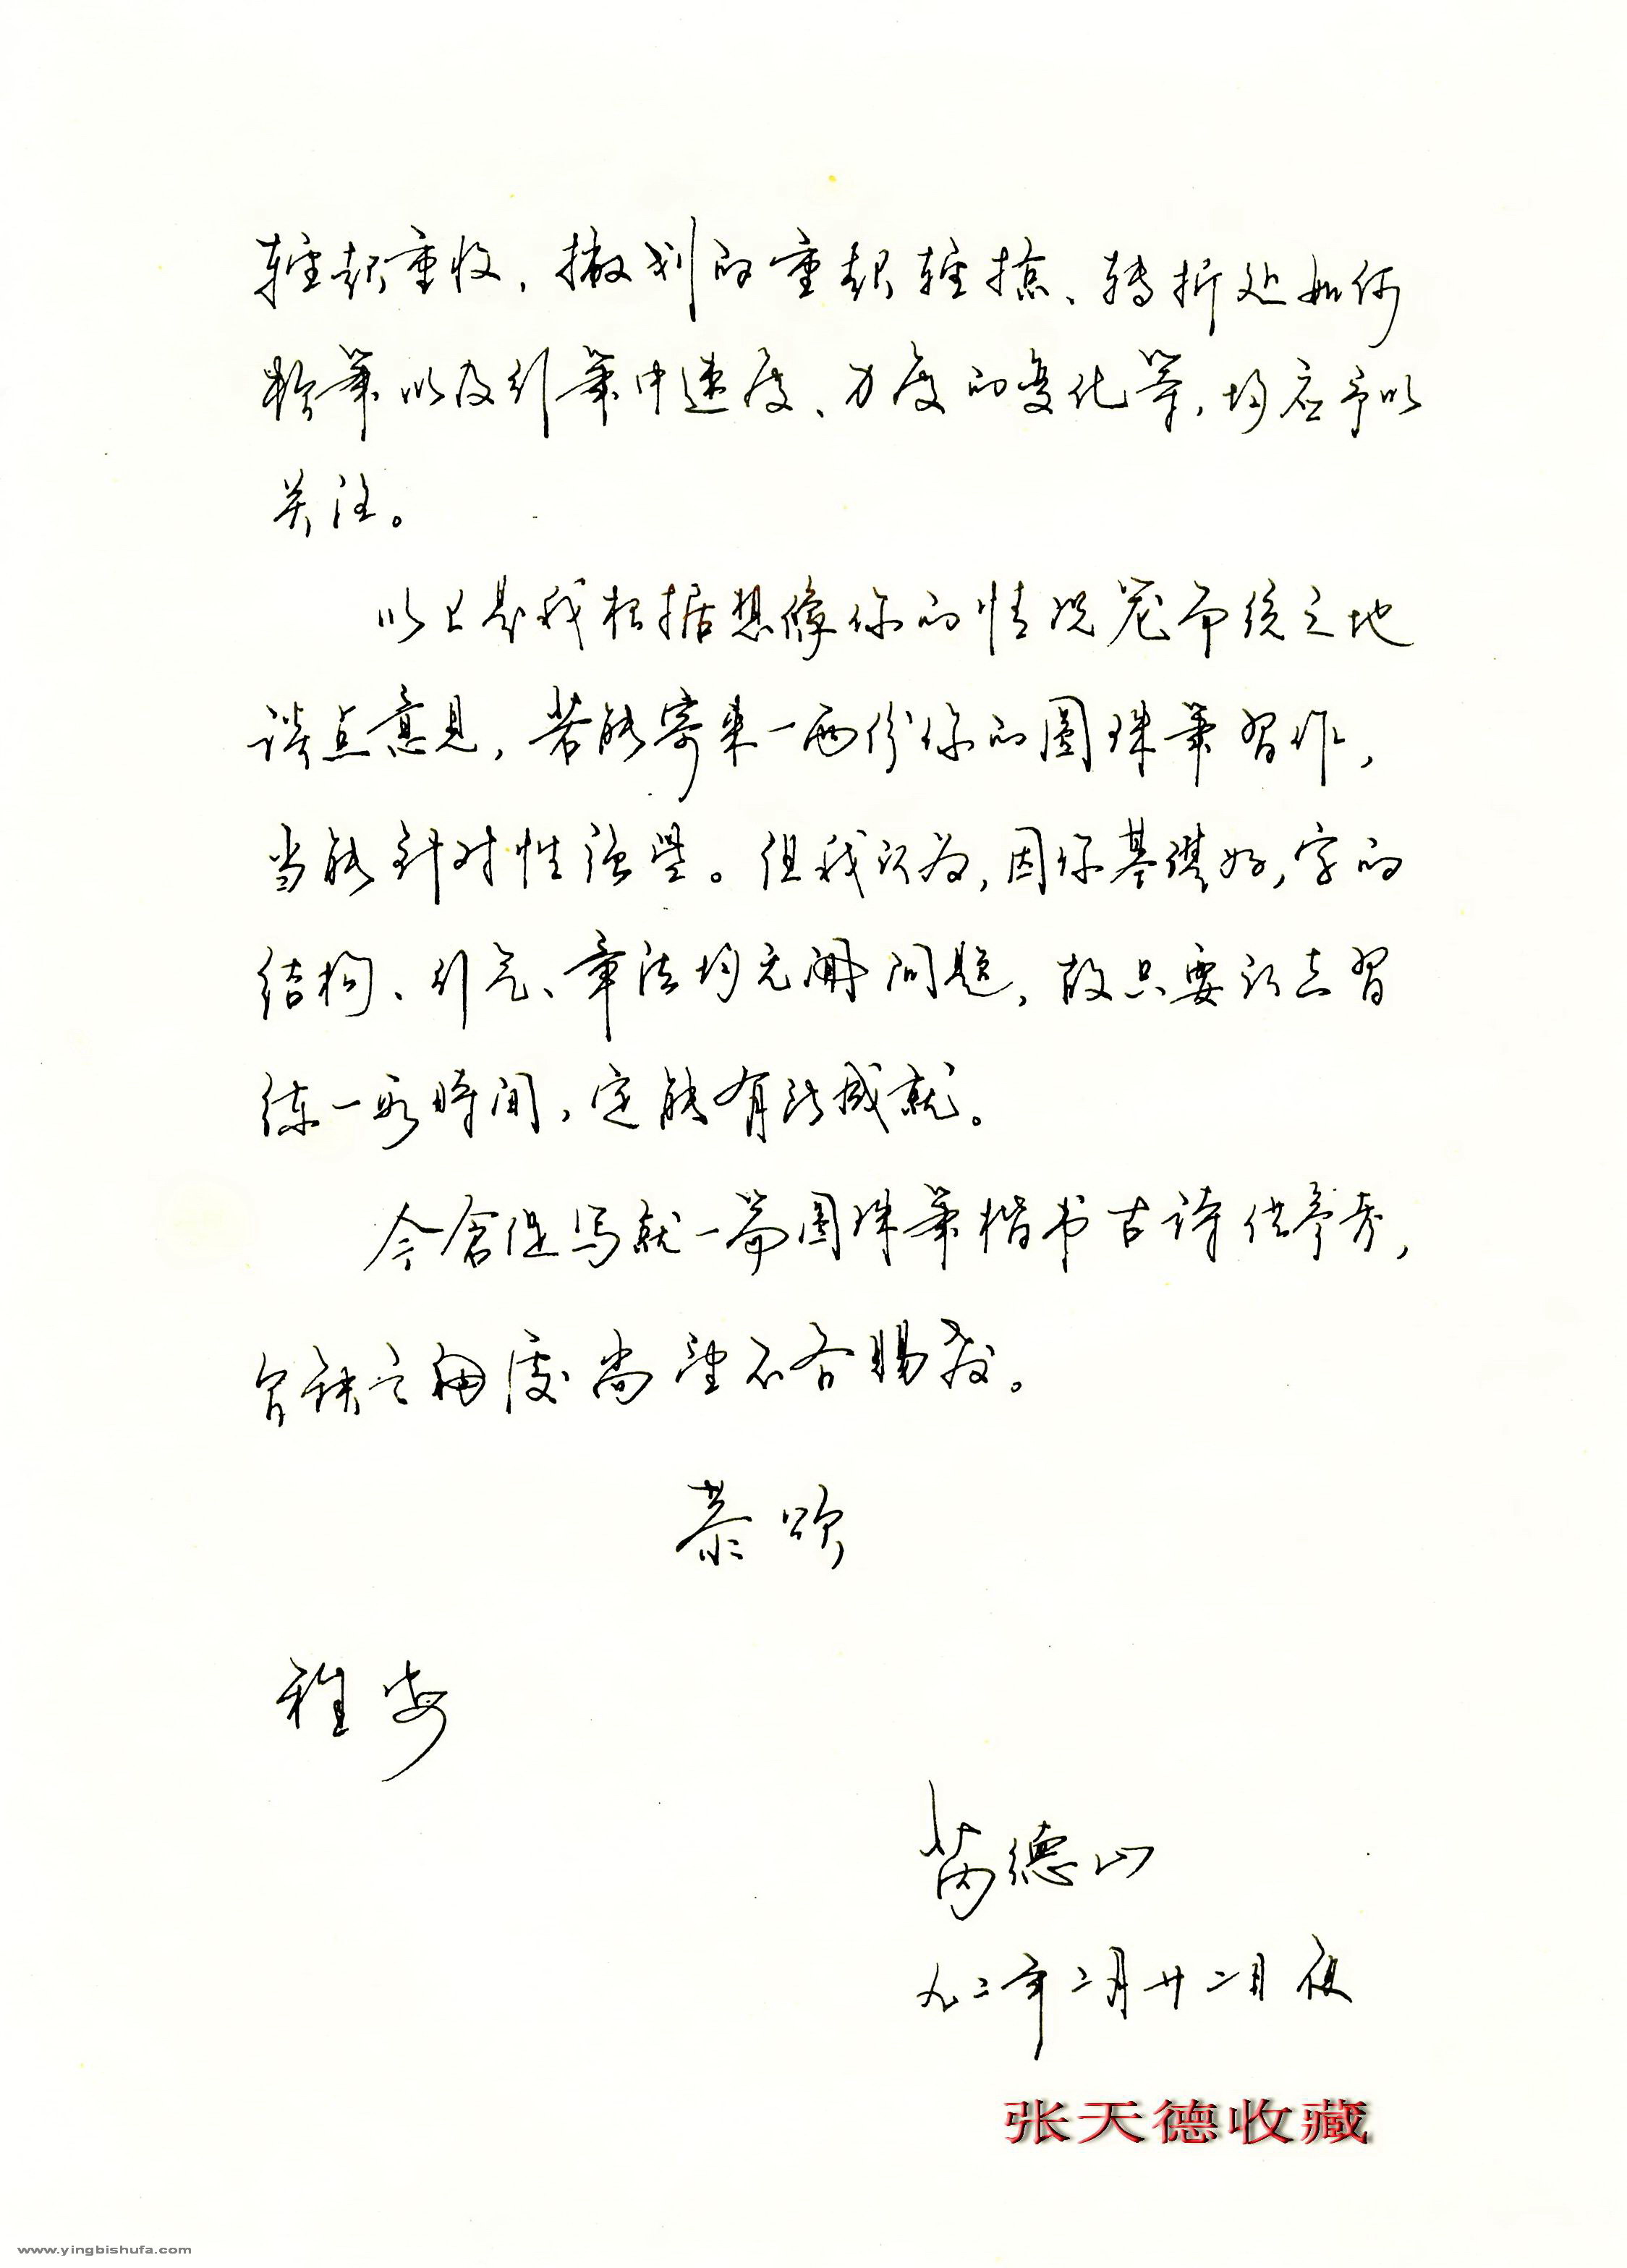 轻起重收，撇划的重起轻掠、转折处如何
换笔以及行笔中速度、力度的变化等，均应予以
关注。
以上是我根据想像你的情况笼而统之地
谈点意见，若能寄来一两份你的圆珠笔习作，
当能针对性强些。但我认为，因你基础好，字的
结构、行气、章法均无问题，故只要认真习
练一段時间，定能有所成就。
今仓促写就一篇圆珠笔楷书古诗供参考，
尚望不吝賜教。
恭颂
雅安
芮德山
九二年二月廿二日夜
张天德收藏
www.yingbishufa.com